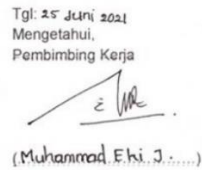 Tgl: 25 Juni 2021
Mengetahui,
Pembimbing Kerja
(Muhammad Ehi J.....)